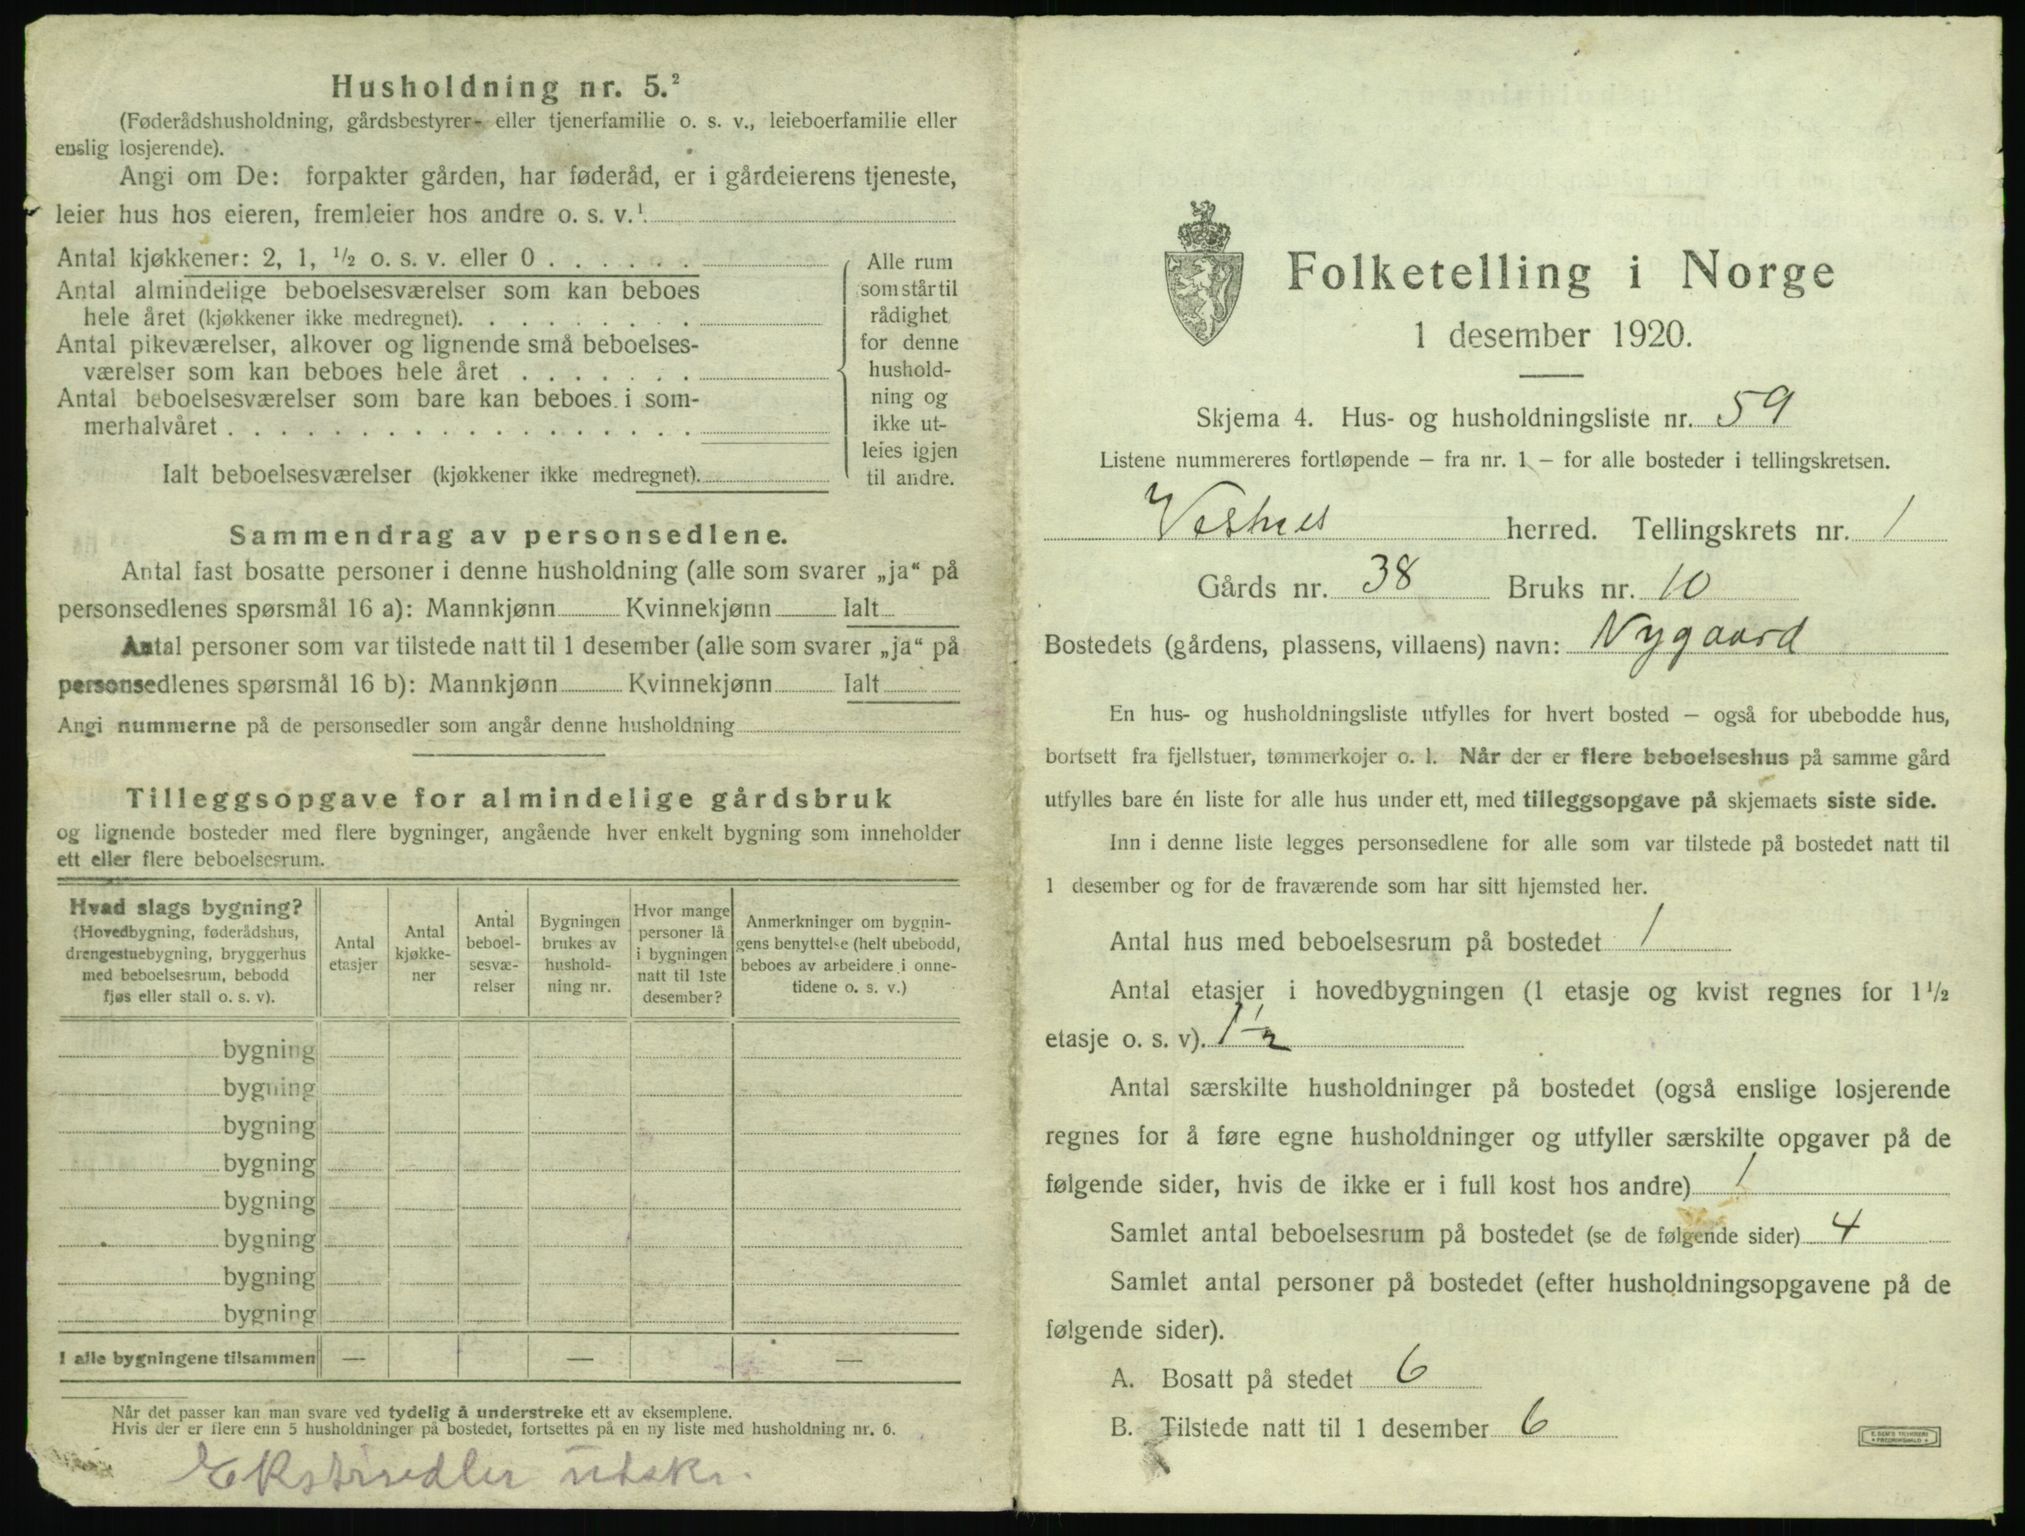 Husholdning nr. 5.²
(Føderådshusholdning, gårdsbestyrer- eller tjenerfamilie o. s. v., leieboerfamilie eller
enslig losjerende).
Angi om De: forpakter gården, har føderåd, er i gårdeierens tjeneste,
leier hus hos eieren, fremleier hos andre o. s. v.¹
Antal kjøkkener: 2, 1, ½ o. s. v. eller 0 . . . . . .
Antal almindelige beboelsesværelser som kan beboes
hele året (kjøkkener ikke medregnet). . . . . . . . .
Antal pikeværelser, alkover og lignende små beboelses-
værelser som kan beboes hele året . . . . . . .
Antal beboelsesværelser som bare kan beboes i som-
merhalvåret . . . . . . . . . . . . . . . . . .
Ialt beboelsesværelser (kjøkkener ikke medregnet).
Alle rum
som står til
rådighet
for denne
hushold-
ning og
ikke ut-
leies igjen
til andre.
Sammendrag av personsedlene.
Antal fast bosatte personer i denne husholdning (alle som svarer „ja“ på
personsedlenes spørsmål 16 a): Mannkjønn Kvinnekjønn Ialt
Antal personer som var tilstede natt til 1 desember (alle som svarer „ja“ på
personsedlenes spørsmål 16 b): Mannkjønn Kvinnekjønn Ialt
Angi nummerne på de personsedler som angår denne husholdning
Tilleggsopgave for almindelige gårdsbruk
og lignende bosteder med flere bygninger, angående hver enkelt bygning som inneholder
ett eller flere beboelsesrum.
Hvad slags bygning?
(Hovedbygning, føderådshus,
drengestuebygning, bryggerhus
med beboelsesrum, bebodd
fjøs eller stall o. s. v).
Antal
etasjer
Antal
kjøkke-
ner
Antal
beboel-
sesvæ-
relser
Bygningen
brukes av
hushold-
ning nr.
Hvor mange
personer lå
i bygningen
natt til 1ste
desember?
Anmerkninger om bygnin-
gens benyttelse (helt ubebodd,
beboes av arbeidere i onne-
tidene o. s. v.)
bygning
bygning
bygning
bygning
bygning
bygning
bygning
bygning
I alle bygningene tilsammen — — —
Når det passer kan man svare ved tydelig å understreke ett av eksemplene.
Hvis der er flere enn 5 husholdninger på bostedet, fortsettes på en ny liste med husholdning nr. 6.
Ekstrasedler utskr.
Folketelling i Norge
1 desember 1920.
Skjema 4. Hus- og husholdningsliste nr. 59
Listene nummereres fortløpende – fra nr. 1 – for alle bosteder i tellingskretsen.
Vestnes herred. Tellingskrets nr. 1
Gårds nr. 38 Bruks nr. 10
Bostedets (gårdens, plassens, villaens) navn: Nygaard
En hus- og husholdningsliste utfylles for hvert bosted – også for ubebodde hus,
bortsett fra fjellstuer, tømmerkojer o. l. Når der er flere beboelseshus på samme gård
utfylles bare én liste for alle hus under ett, med tilleggsopgave på skjemaets siste side.
Inn i denne liste legges personsedlene for alle som var tilstede på bostedet natt til
1 desember og for de fraværende som har sitt hjemsted her.
Antal hus med beboelsesrum på bostedet 1
Antal etasjer i hovedbygningen (1 etasje og kvist regnes for 1½
etasje o. s. v). 1½
Antal særskilte husholdninger på bostedet (også enslige losjerende
regnes for å føre egne husholdninger og utfyller særskilte opgaver på de
følgende sider, hvis de ikke er i full kost hos andre) 1
Samlet antal beboelsesrum på bostedet (se de følgende sider) 4
Samlet antal personer på bostedet (efter husholdningsopgavene på de
følgende sider).
A. Bosatt på stedet 6
B. Tilstede natt til 1 desember 6